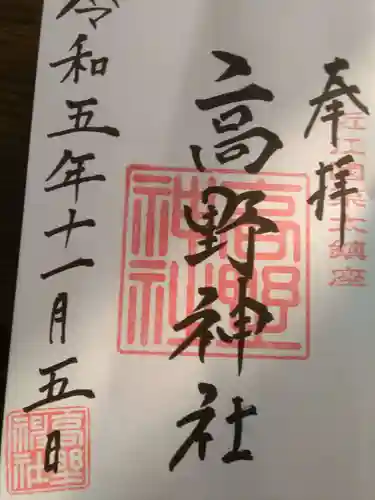 奉拝
二高野神社
高野
神社
令和五年十一月五日
高野
神社